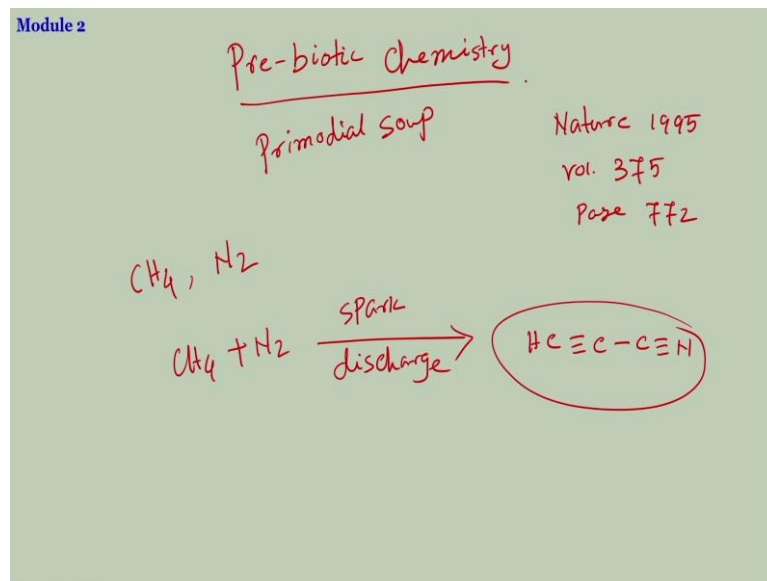 Module 2
Pre-biotic Chemistry.
Primodial Soup
Nature 1995
vol. 375
Page 772
CH4, N2
CH4 + N2 spark discharge → HC≡C-C≡N